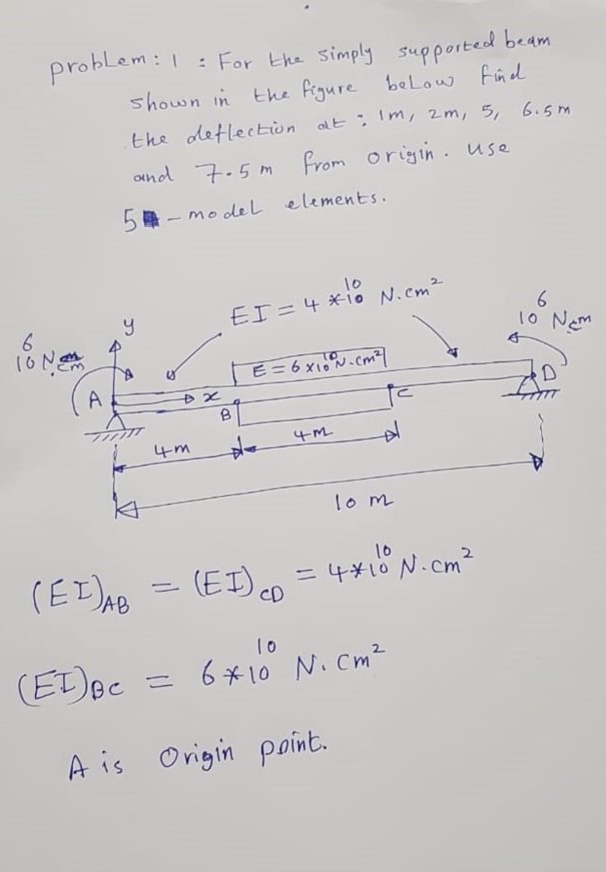 problem: 1 : For the simply supported beam
shown in the figure below find
the deflection at : 1m, 2m, 5, 6.5m
and 7.5m from origin. use
5 - model elements.
EI = 4 *10^10 N.cm^2
10^6 N.cm
y
10^6 N.cm
E = 6 x10^10 N.cm^2
A
x
B
C
D
4m
4m
10 m
(EI)AB = (EI)CD = 4*10^10 N.cm^2
(EI)BC = 6*10^10 N.cm^2
A is Origin point.